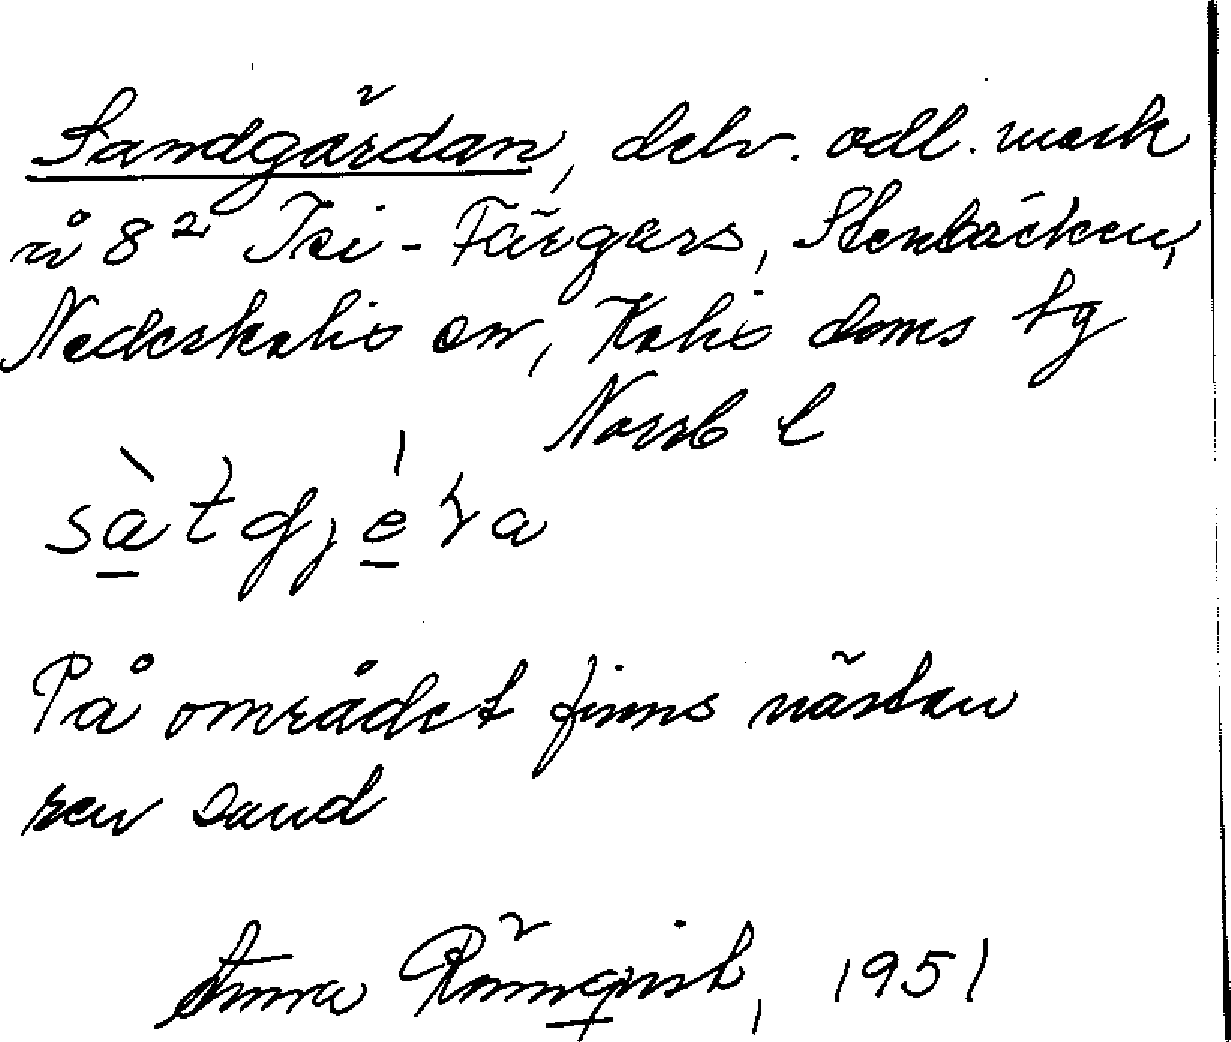 Sandgärdan, delv. odl. mark
å 8² Isi-Färgars, Stenbäcken,
Nederkalix sn, Kalix doms tg
Norrb l
På området finns nästan
ren sand
Anna Rönnqvist, 1951